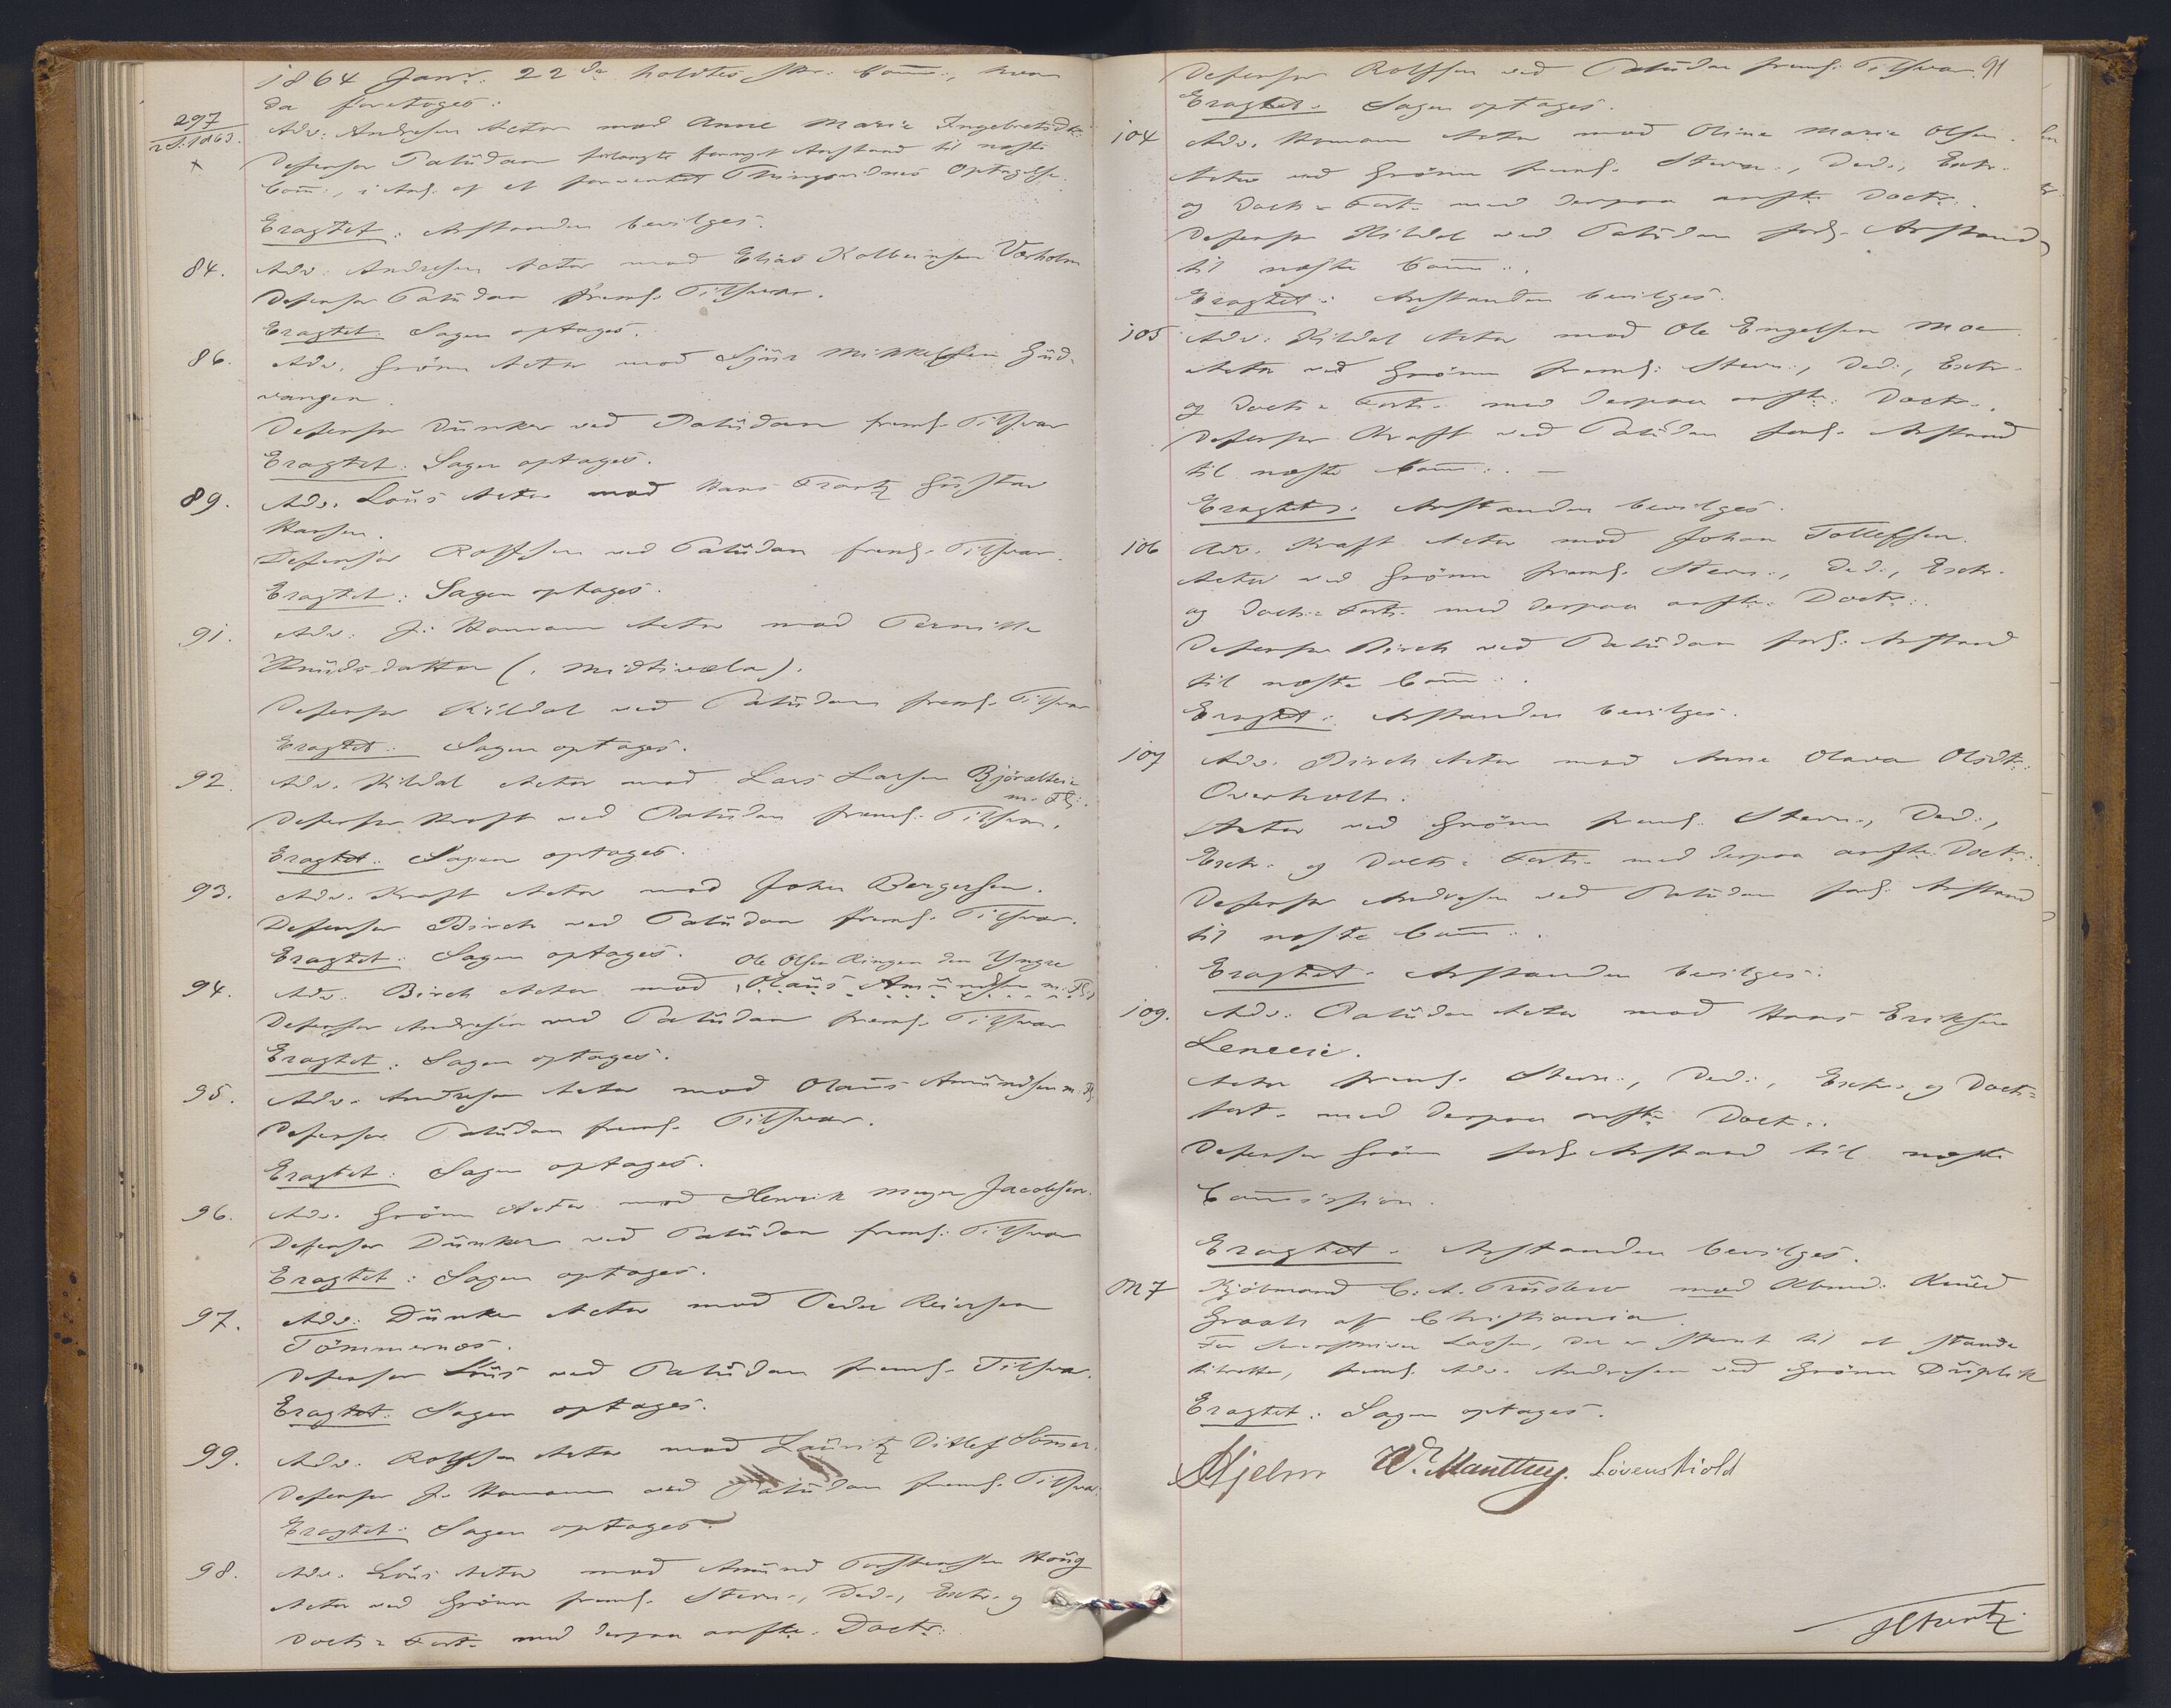 1864 Janr. 22de holdtes skr. Comm:, hvor
da foretoges:
297
2 S. 1863.
Adv: Andresen Actor mod Anne Marie Ingebretsdtr:
Defensor Paludan forlangte Anstand til næste
Com:, i Anl. af et forventet Thingsvidnes Optagelse.
Eragtet: Anstanden bevilges.
84. Adv: Andresen Actor mod Elias Kolbeinsen Vorholm
Defensor Paludan freml. Tilsvar.
Eragtet: Sagen optages.
86. Adv. Grönn Actor mod Sjur Mikkelsen Gud-
vangen.
Defensor Dunker ved Paludan freml. Tilsvar
Eragtet: Sagen optages.
89. Adv. Lous Actor mod Hans Frantz Gustav
Hansen.
Defensor Rolfsen ved Paludan freml. Tilsvar.
Eragtet: Sagen optages.
91. Adv: J. Homann Actor mod Pernille
Knudsdatter (Midtivæla).
Defensor Kildal ved Paludan freml. Tilsvar
Eragtet: Sagen optages.
92. Adv. Kildal Actor mod Lars Larsen
m. Fl:
Defensor Kraft ved Paludan freml. Tilsvar.
Eragtet: Sagen optages.
93. Adv. Kraft Actor mod Johan Bergersen.
Defensor Birch ved Paludan freml. Tilsvar.
Eragtet: Sagen optages.
Ole Olsen Ringen den Yngre
94. Adv. Birch Actor mod Olaus Amundsen m. Fl.
Defensor Andresen ved Paludan freml. Tilsvar
Eragtet: Sagen optages.
95. Adv. Andresen Actor mod Olaus Amundsen m. Fl.
Defensor Paludan freml. Tilsvar.
Eragtet: Sagen optages.
96. Adv. Grönn Actor mod Henrik Meyer Jacobsen.
Defensor Dunker ved Paludan freml. Tilsvar
Eragtet: Sagen optages.
97. Adv: Dunker Actor mod Peder Reiersen
Tömmernæs.
Defensor Lous ved Paludan freml. Tilsvar.
Eragtet: Sagen optages.
99. Adv. Rolfsen Actor mod Lauritz Ditlef
Defensor J. Homann ved Paludan freml. Tilsvar.
Eragtet: Sagen optages.
98. Adv. Lous Actor mod Amund Torstensen Houg
Actor ved Grönn freml. Stevn., Ded., Extr. og
Doct: Fort. med derpaa anfte. Doctr:
91
Defensor Rolfsen ved Paludan freml. Tilsvar.
Eragtet: Sagen optages.
104 Adv. Homann Actor mod Oline Marie Olsen.
Actor ved Grönn freml. Stevn., Ded., Extr.
og Doct: Fort. med derpaa anfte. Doctr.
Defensor Kildal ved Paludan forl. Anstand
til næste Com:.
Eragtet: Anstanden bevilges.
105 Adv. Kildal Actor mod Ole Engelsen Moe
Actor ved Grönn freml: Stevn., Ded., Extr.
og Doct: Fort. med derpaa anfte: Doctr.
Defensor Kraft ved Paludan forl. Anstand
til næste Com:. —
Eragtet: Anstanden bevilges.
106 Adv. Kraft Actor mod Johan Tollefsen.
Actor ved Grönn freml. Stevn., Ded., Extr.
og Doct: Fort. med derpaa anfte: Doctr:.
Defensor Birch ved Paludan forl: Anstand
til næste Com:.
Eragtet: Anstanden bevilges.
107 Adv. Birch Actor mod Anne Olava Olsdtr:
Overholt.
Actor ved Grönn freml. Stevn., Ded.,
Extr. og Doct: Fort. med derpaa anfte: Doctr:.
Defensor Andresen ved Paludan forl. Anstand
til næste Com:.
Eragtet: Anstanden bevilges:
109. Adv: Paludan Actor mod Hans Eriksen
Leneeie.
Actor freml. Stevn., Ded., Extr. og Doct:
fort. med derpaa anfte. Doct:.
Defensor Grönn forl. Anstand til næste
Commission.
Eragtet: Anstanden bevilges.
M7 Kjöbmand C. A. Truslew mod Kbmd: Knud
Graah af Christiania.
For Sorenskriver Lassen, der er stevnt til at staae
tilrette, freml. Adv. Andresen ved Grönn Duplik
Eragtet: Sagen optages.
Hjelm W. Manthey. Lövenskiold